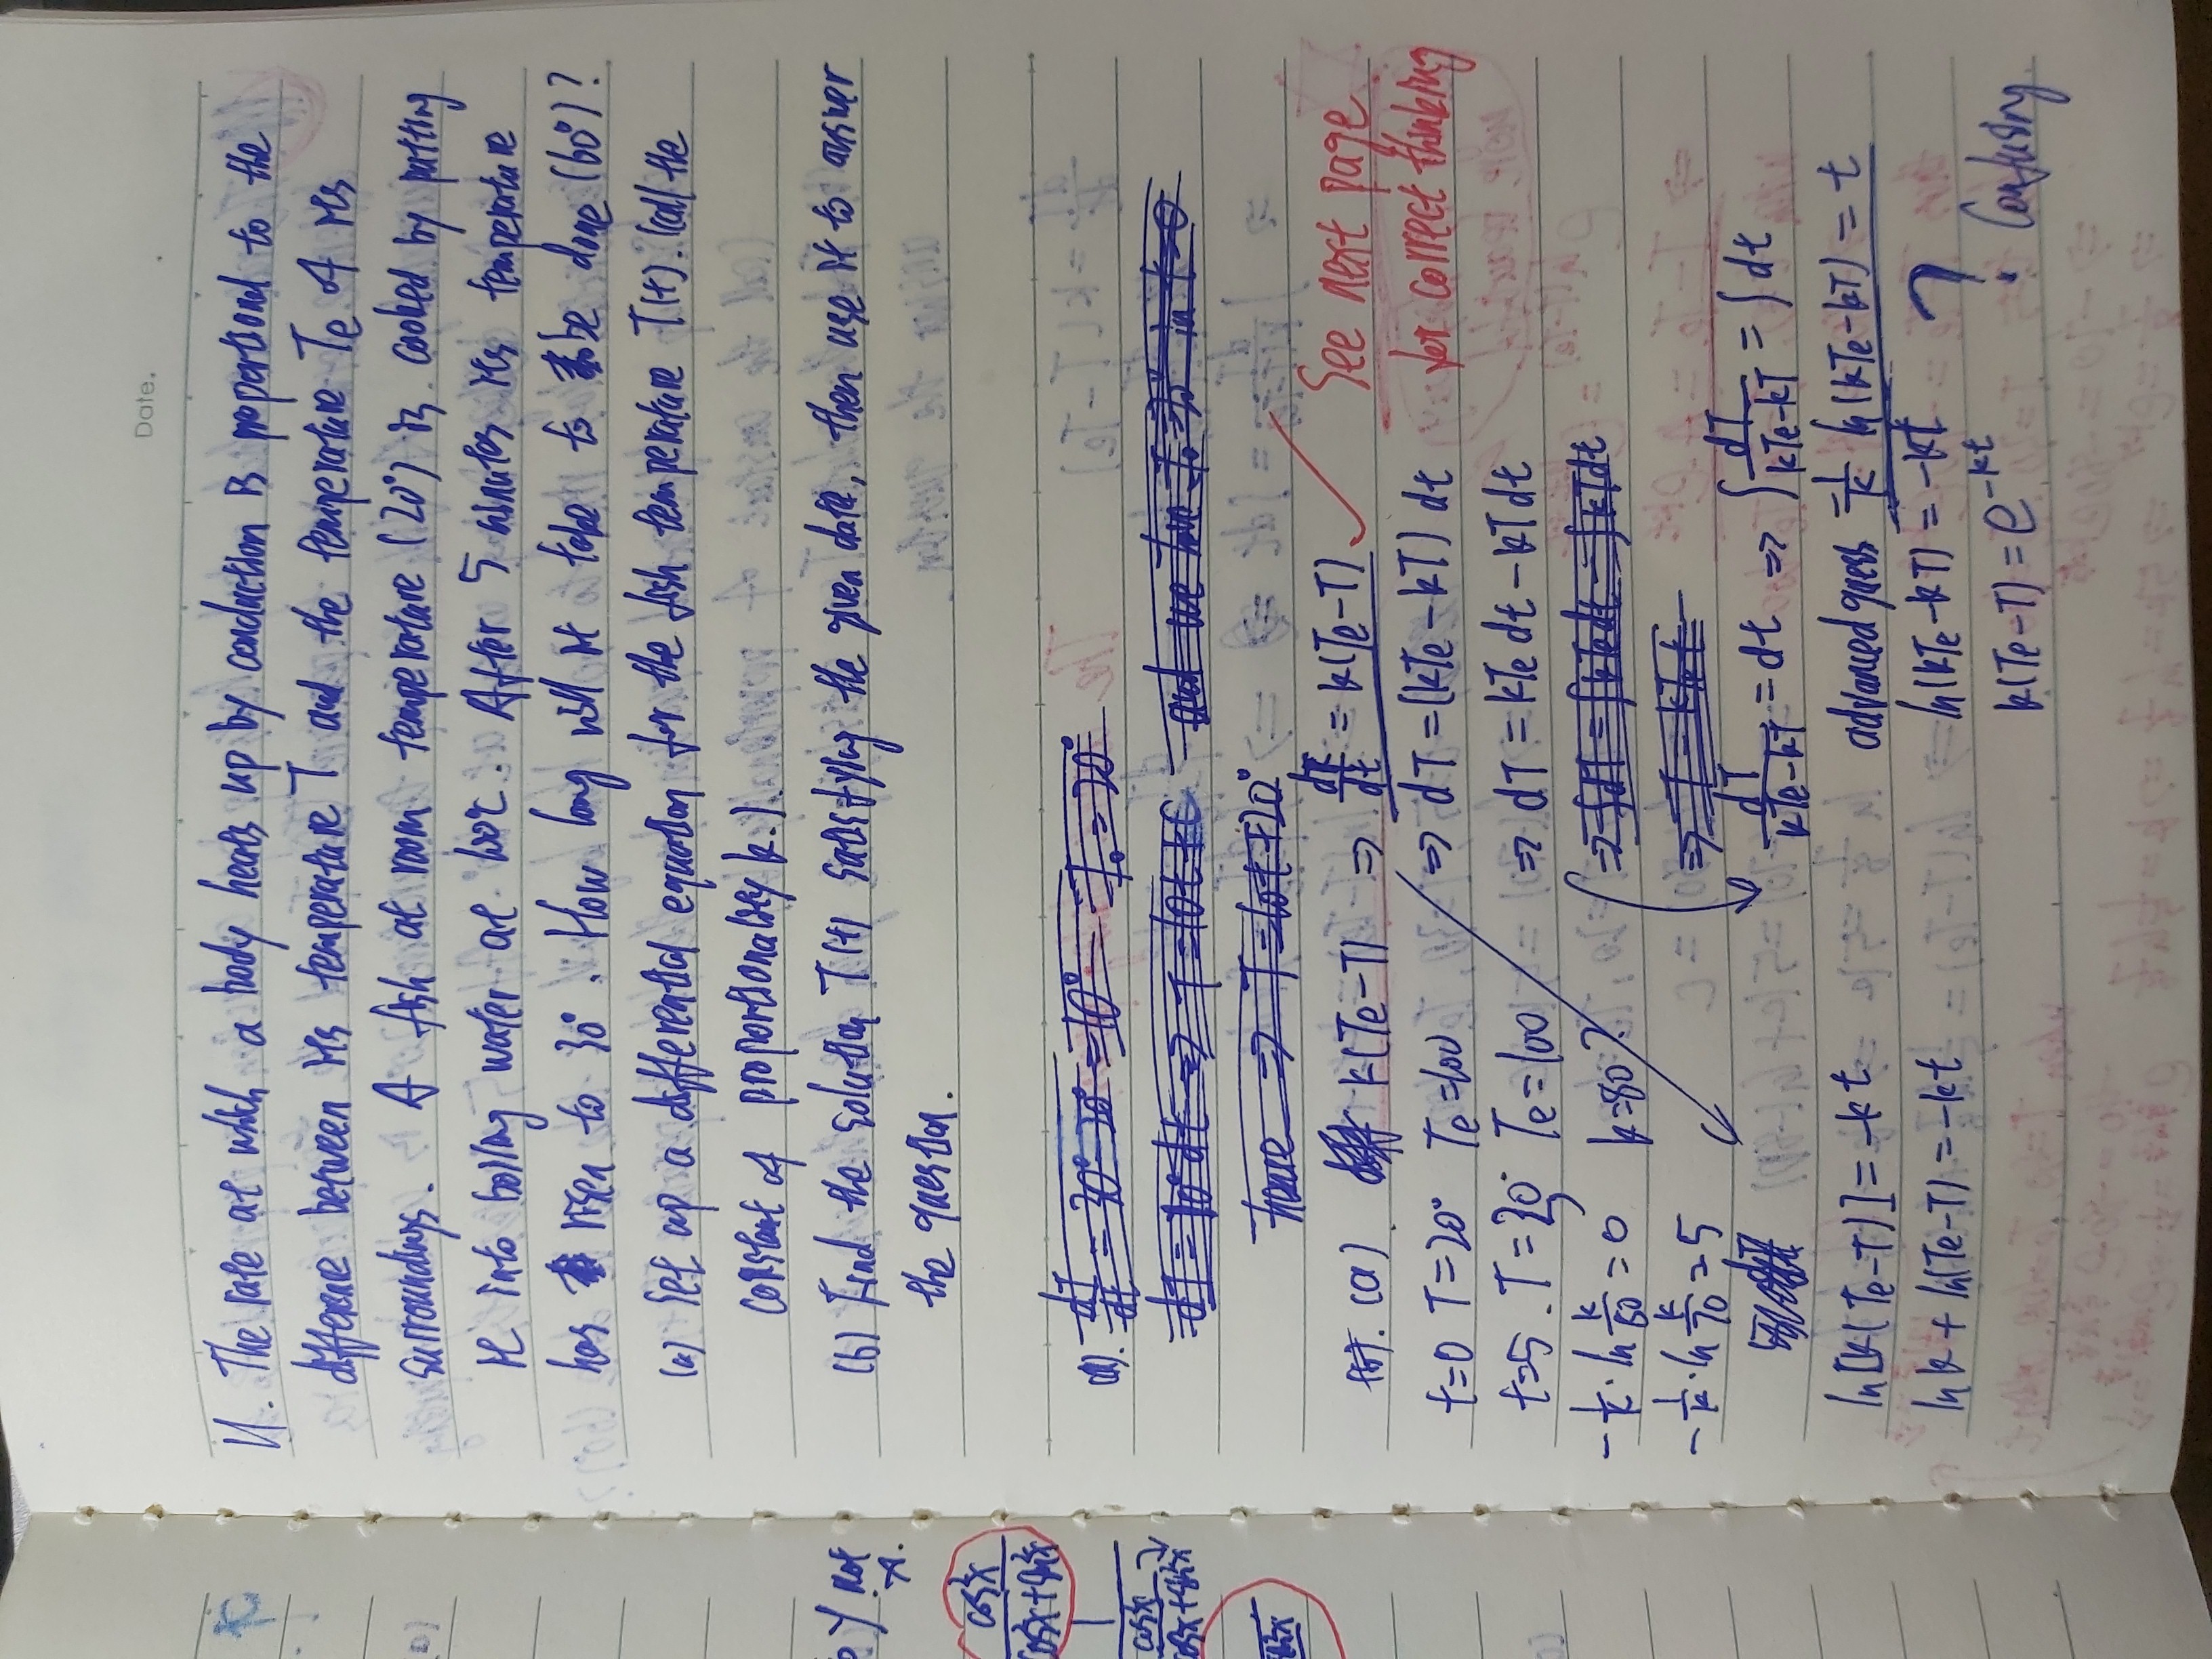 Date.
11. The rate at which a body heats up by conduction is proportional to the
difference between its temperature T and the temperature Te of its
surroundings. A fish at room temperature (20°) is cooked by putting
it into boiling water at 100°C. After 5 minutes its temperature
has risen to 30°. How long will it take to be done (60°)?
(a) Set up a differential equation for the fish temperature T(t). (call the
constant of proportionality k.).
(b) Find the solution T(t) satisfying the given data, then use it to answer
the question.
y not
x.
cos²x
cos²x+sin²x
1
cos²x
cos²x+sin²x
(a). dT/dt = 30°-20° = 10° T₀ = 20°
dT = 10° dt => T = 10t + C and we have T₀ = 20° in t=0
hence => T = 10t + 20°
(a). k(Te-T) => dT/dt = k(Te-T) ✓ See next page
for correct thinking
t=0 T=20° Te=100 => dT = (kTe-kT) dt
t=5. T=30° Te=100 => dT = kTe dt - kT dt
-1/k · ln k/80 = 0 k=80? => ∫dT = ∫kTe dt - ∫kT dt
-1/k · ln k/70 = 5
dT/(kTe-kT) = dt => ∫ dT/(kTe-kT) = ∫ dt
ln[k(Te-T)] = -kt advanced guess -1/k ln(kTe-kT) = t
ln k + ln(Te-T) = -kt ln(kTe-kT) = -kt ?
k(Te-T) = e^(-kt) Confusing